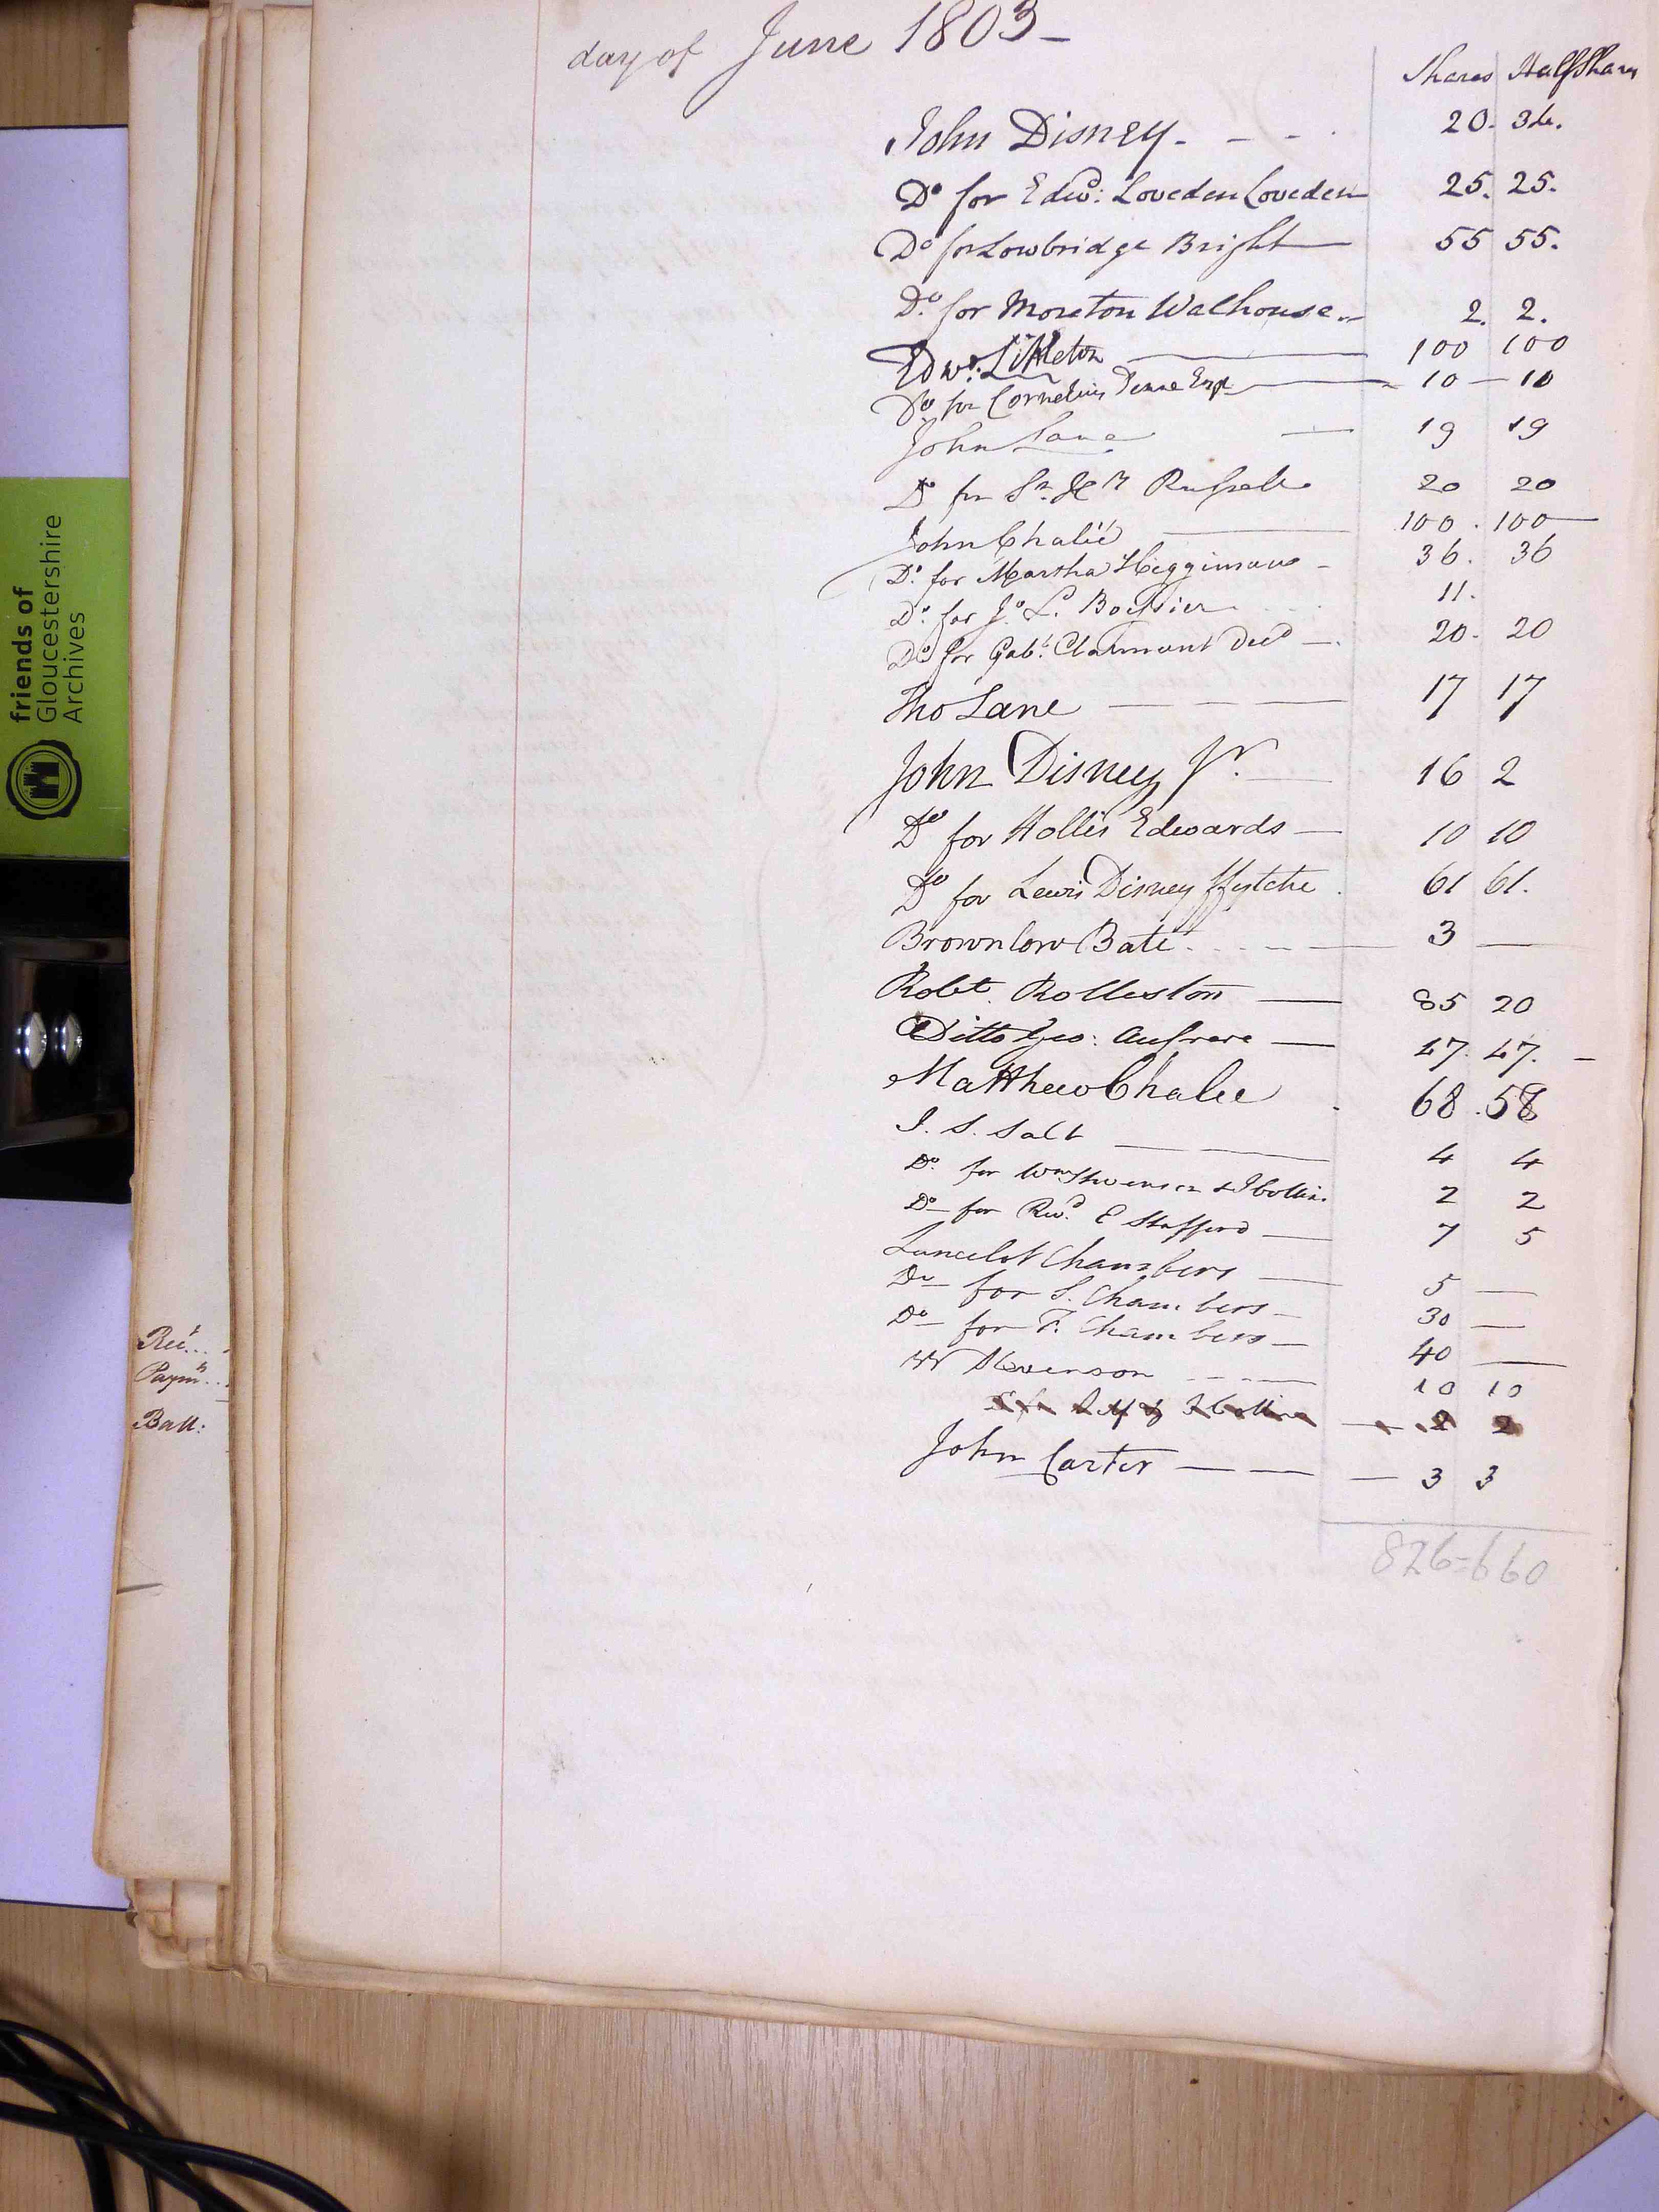 day of June 1803 -
Shares Half Shares
John Disney. - - . 20. 36.
Do for Edwd: Loveden Loveden 25. 25.
Do for Lowbridge Bright 55 55.
Do. for Moreton Walhouse 2. 2.
Edwd: Littleton 100 100
Do for Cornelius Denne Esqr 10 - 10
John Lane 19 19
Do for Sr. Hy Russell 20 20
John Chalié 100 . 100
Do. for Martha Higginson - 36. 36
Do. for Jo. L. Boissier 11.
Do for Gabl. Clarmont Decd 20. 20
Tho Lane 17 17
John Disney Jr. 16 2
Do for Hollis Edwards 10 10
Do for Lewis Disney ffytche 61 61.
Brownlow Bate 3 —
Robt. Rolleston 85 20
Ditto Geo: Aufrere 47. 47. -
Matthew Chalie 68 . 58
J. S. Salt 4 4
Do. for Wm 2 2
Do for Revd. E Stafford 7 5
Lancelot Chambers 5 —
Do for S. Chambers 30 —
Do for F. Chambers 40 —
W Stevenson 10 10
2 2
John Carter 3 3
826=660
Rect...
Paymts...
Ball:
friends of
Gloucestershire
Archives